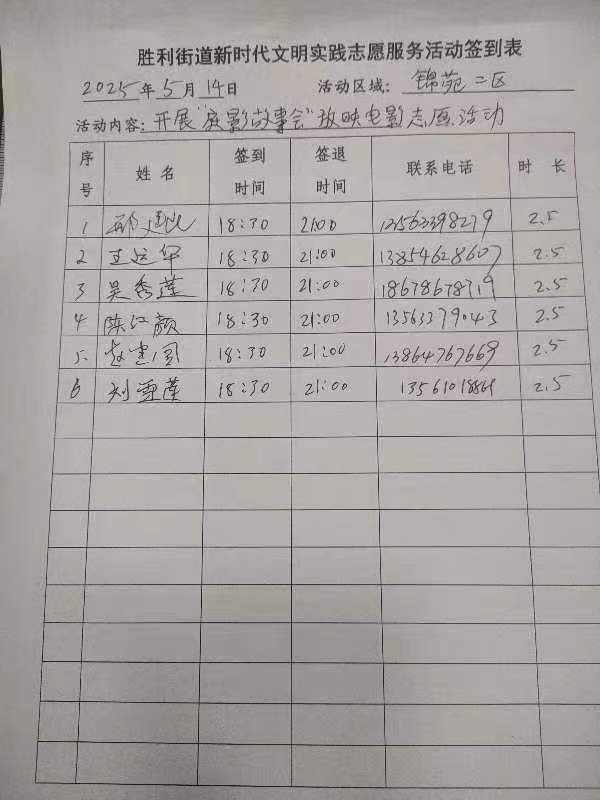 胜利街道新时代文明实践志愿服务活动签到表
2025年5月14日 活动区域: 锦苑二区
活动内容: 开展"故事会"放映电影志愿活动
序号 姓名 签到时间 签退时间 联系电话 时长
1 18:30 21:00 13563398279 2.5
2 王运军 18:30 21:00 13854628607 2.5
3 吴秀莲 18:30 21:00 18678678719 2.5
4 陈江颜 18:30 21:00 13563379043 2.5
5 赵 18:30 21:00 13864767669 2.5
6 刘雪莲 18:30 21:00 2.5